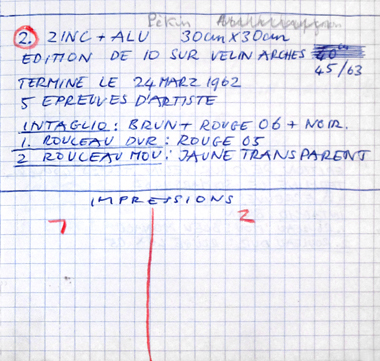 Pékin
2. ZINC + ALU 30cm X 30cm
EDITION DE 10 SUR VELIN ARCHES
45/63
TERMINE LE 24 MARZ 1962
5 EPREUVES D'ARTISTE
INTAGLIO: BRUN + ROUGE 06 + NOIR.
1. ROULEAU DUR: ROUGE 05
2 ROUCEAU MOU: JAUNE TRANSPARENT
IMPRESSIONS
1 2